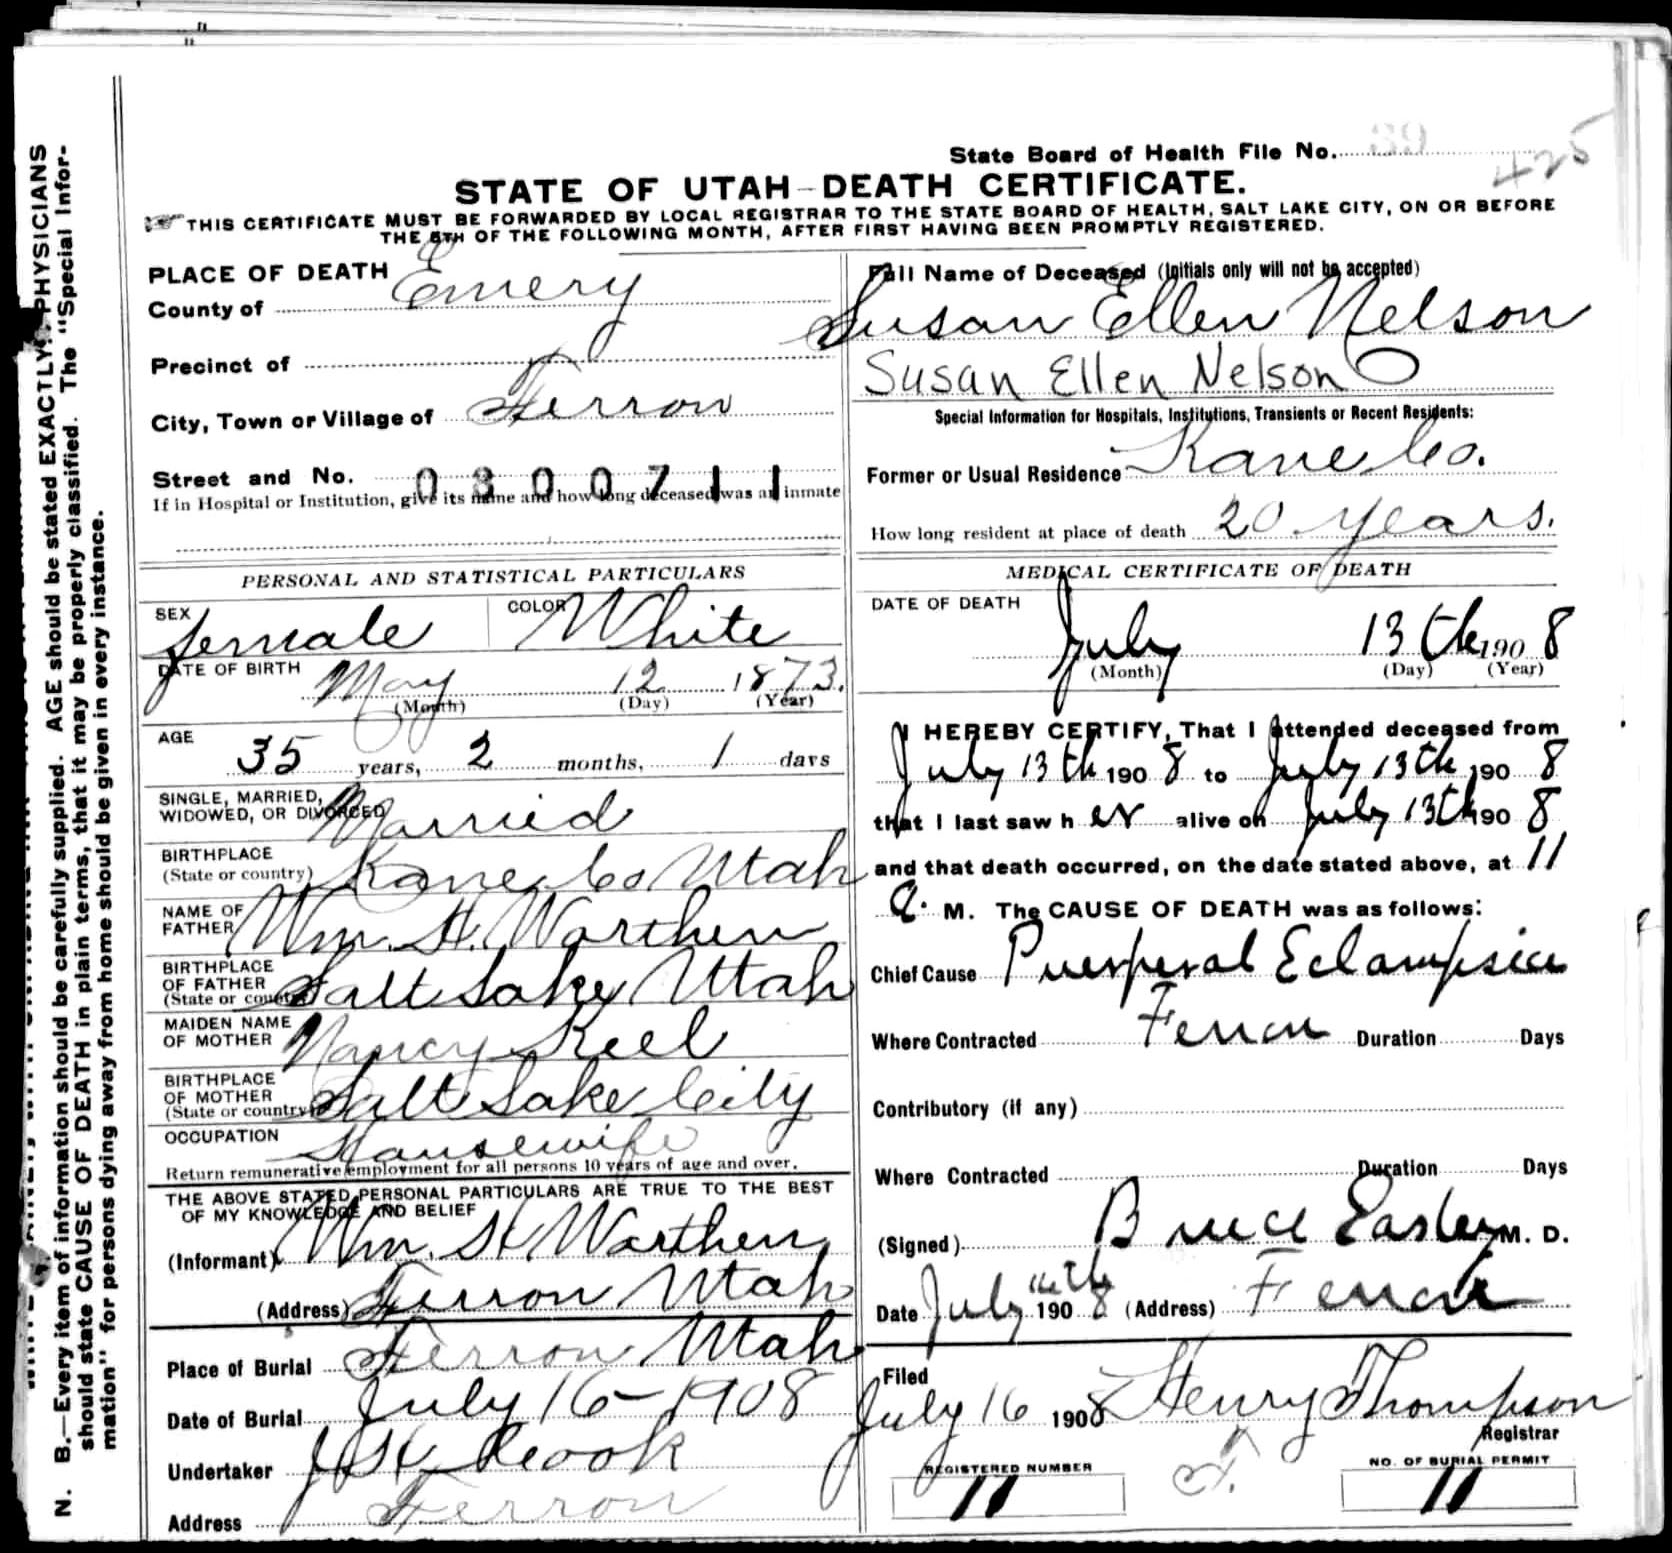 State Board of Health File No. 89
425
STATE OF UTAH—DEATH CERTIFICATE.
THIS CERTIFICATE MUST BE FORWARDED BY LOCAL REGISTRAR TO THE STATE BOARD OF HEALTH, SALT LAKE CITY, ON OR BEFORE
THE 5TH OF THE FOLLOWING MONTH, AFTER FIRST HAVING BEEN PROMPTLY REGISTERED.
PLACE OF DEATH
County of Emery
Precinct of
City, Town or Village of Ferron
Street and No. 0300711
If in Hospital or Institution, give its name and how long deceased was an inmate
Full Name of Deceased (Initials only will not be accepted)
Susan Ellen Nelson
Susan Ellen Nelson
Special Information for Hospitals, Institutions, Transients or Recent Residents:
Former or Usual Residence Kane Co.
How long resident at place of death 20 years.
PERSONAL AND STATISTICAL PARTICULARS
SEX female COLOR White
DATE OF BIRTH May 12 1873.
(Month) (Day) (Year)
AGE 35 years, 2 months, 1 days
SINGLE, MARRIED,
WIDOWED, OR DIVORCED Married
BIRTHPLACE
(State or country) Kane Co Utah
NAME OF
FATHER Wm. H. Warthen
BIRTHPLACE
OF FATHER
(State or country) Salt Lake Utah
MAIDEN NAME
OF MOTHER Nancy Keel
BIRTHPLACE
OF MOTHER
(State or country) Salt Lake City
OCCUPATION Housewife
Return remunerative employment for all persons 10 years of age and over.
THE ABOVE STATED PERSONAL PARTICULARS ARE TRUE TO THE BEST
OF MY KNOWLEDGE AND BELIEF
(Informant) Wm. H Warthen
(Address) Ferron Utah
Place of Burial Ferron Utah
Date of Burial July 16-1908
Undertaker
Address Ferron
MEDICAL CERTIFICATE OF DEATH
DATE OF DEATH
July 13th 1908
(Month) (Day) (Year)
I HEREBY CERTIFY, That I attended deceased from
July 13th 1908 to July 13th 1908
that I last saw her alive on July 13th 1908
and that death occurred, on the date stated above, at 11
a. M. The CAUSE OF DEATH was as follows:
Chief Cause Puerperal Eclampsia
Where Contracted Ferron Duration Days
Contributory (if any)
Where Contracted Duration Days
(Signed) Bruce Easley M. D.
Date July 14th 1908 (Address) Ferron
Filed
July 16 1908 Henry Thompson
Registrar
REGISTERED NUMBER
11
NO. OF BURIAL PERMIT
11
N. B.—Every item of information should be carefully supplied. AGE should be stated EXACTLY. PHYSICIANS
should state CAUSE OF DEATH in plain terms, that it may be properly classified. The "Special Infor-
mation" for persons dying away from home should be given in every instance.